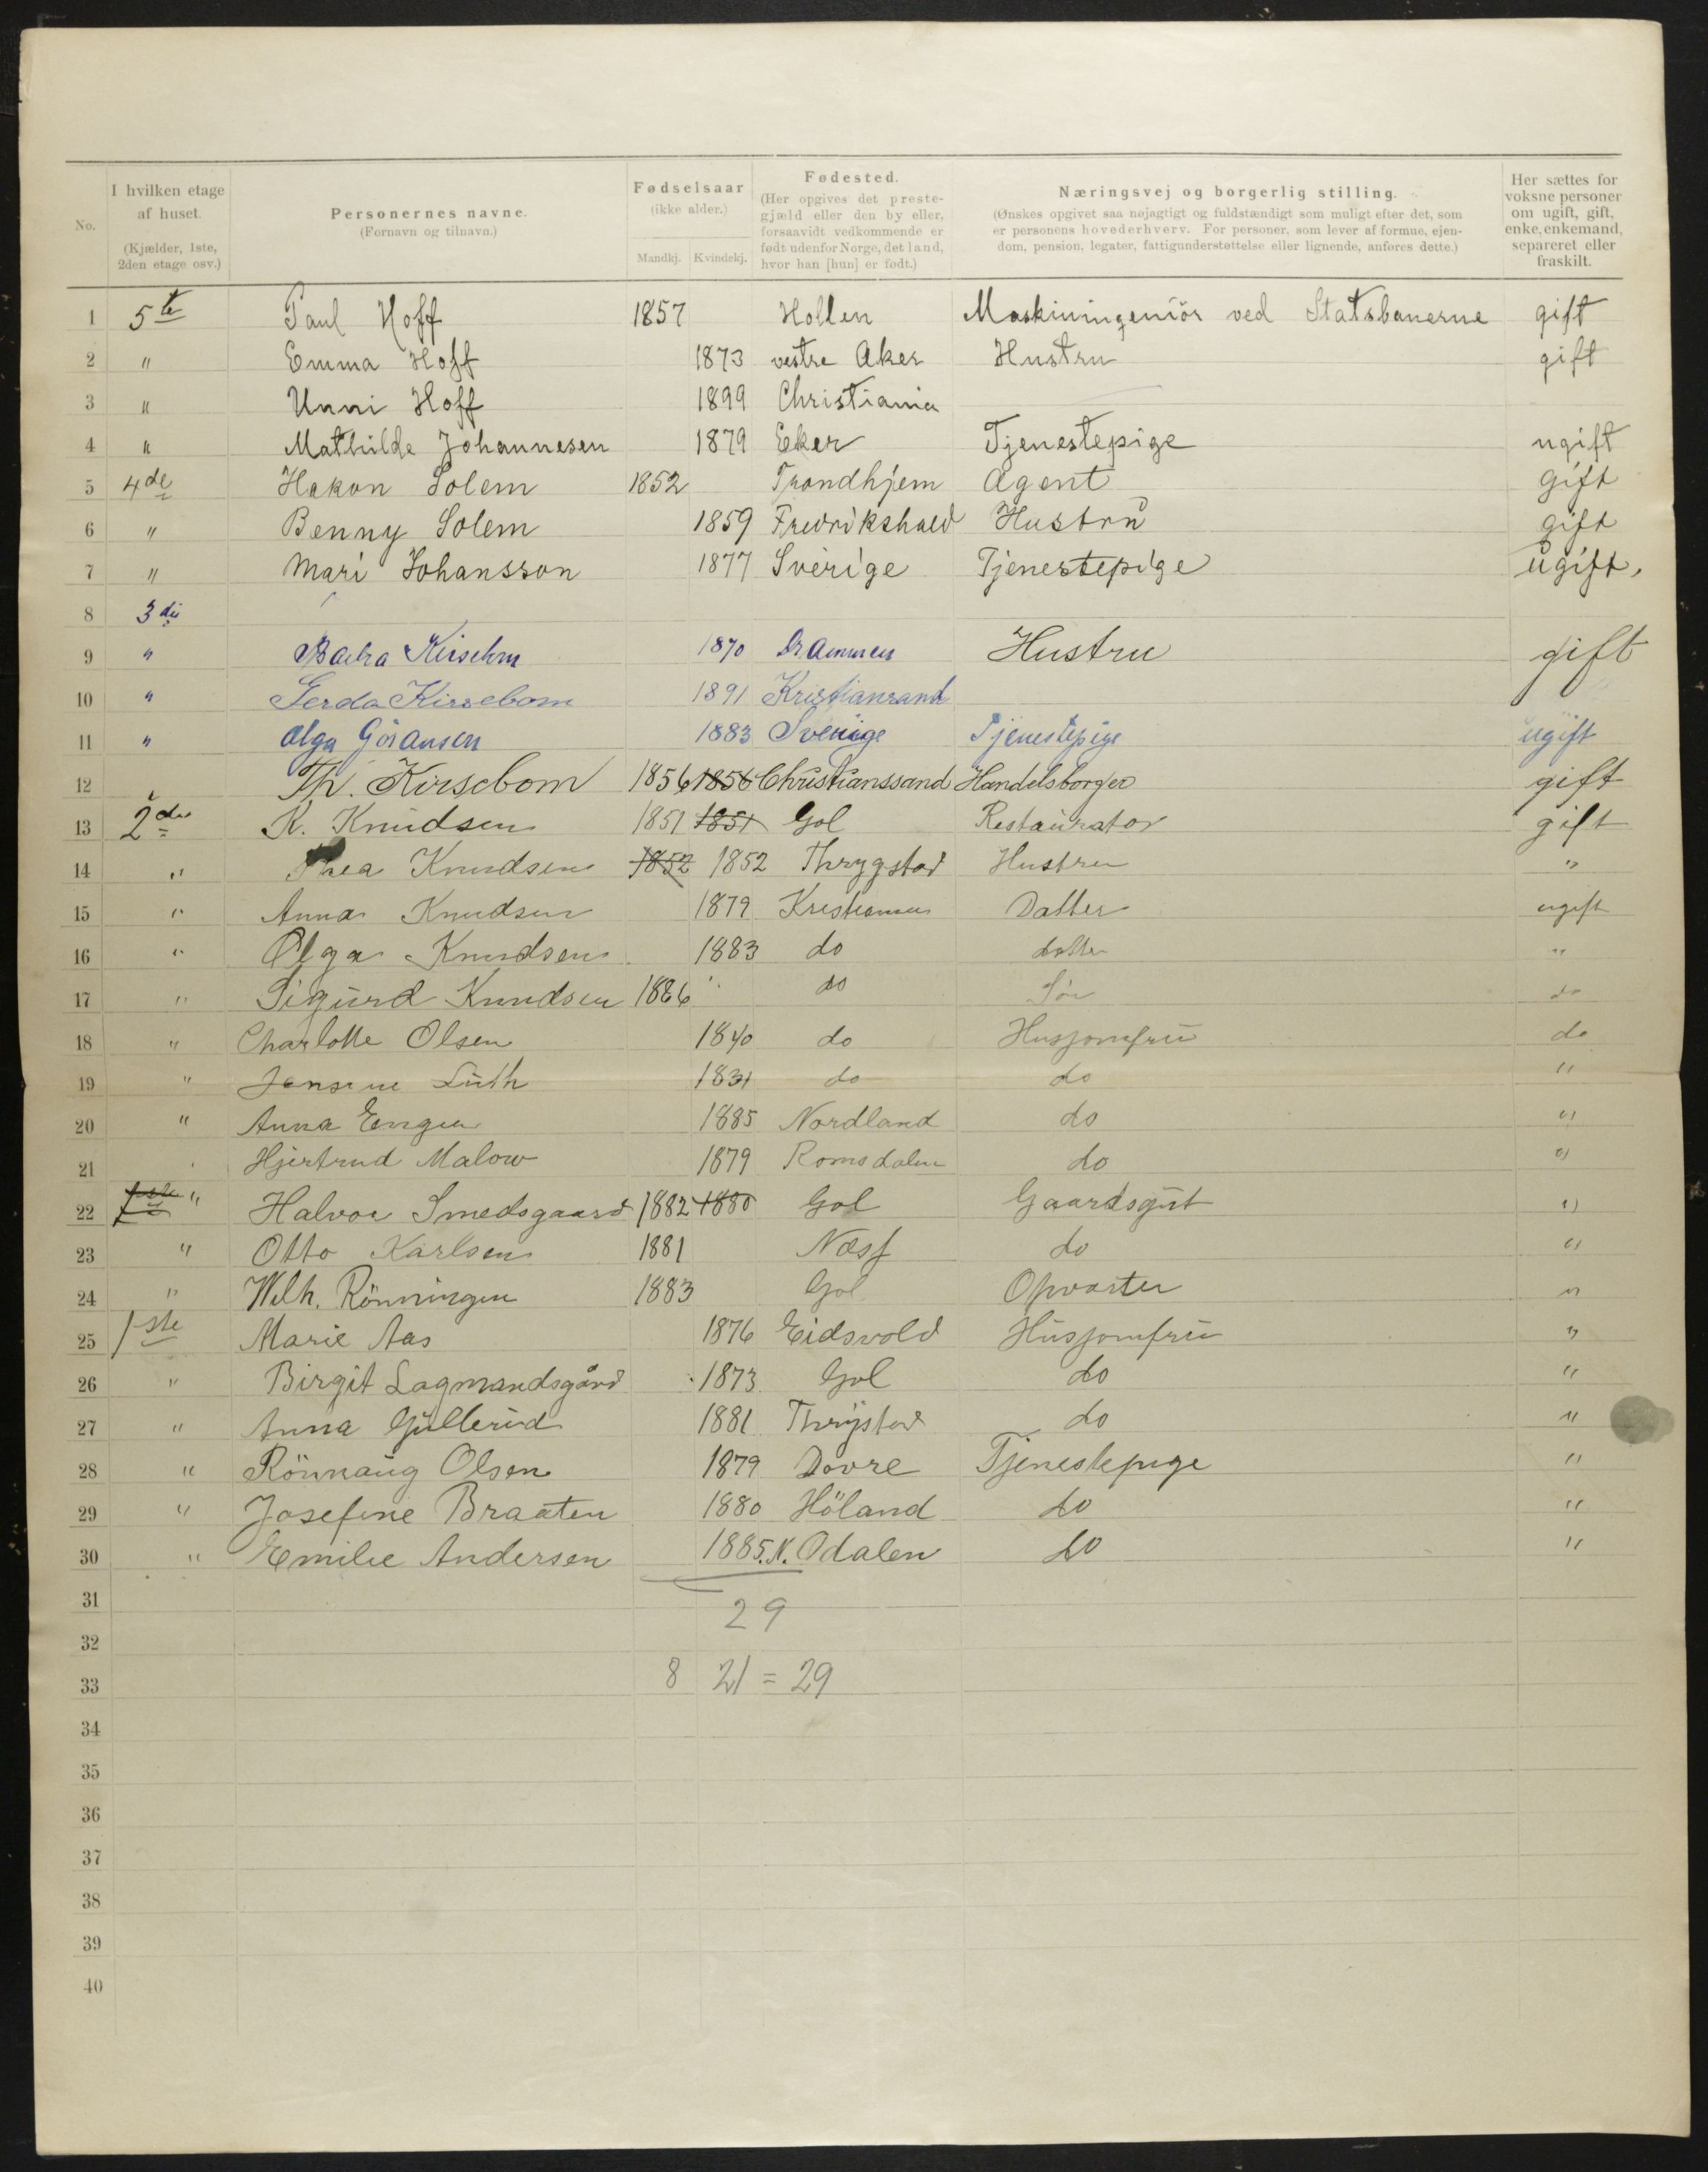 No. I hvilken etage af huset. (Kjælder, 1ste, 2den etage osv.) Personernes navne. (Fornavn og tilnavn.) Fødselsaar (ikke alder.) Mandkj. Kvindekj. Fødested. (Her opgives det prestegjæld eller den by eller, forsaavidt vedkommende er født udenfor Norge, det land, hvor han [hun] er født.) Næringsvej og borgerlig stilling. (Ønskes opgivet saa nøjagtigt og fuldstændigt som muligt efter det, som er personens hovederhverv. For personer, som lever af formue, ejendom, pension, legater, fattigunderstøttelse eller lignende, anføres dette.) Her sættes for voksne personer om ugift, gift, enke, enkemand, separeret eller fraskilt.
1 5te Paul Hoff 1857 Hollen Maskiningeniör ved Statsbanerne gift
2 " Emma Hoff 1873 vestre Aker Hustru gift
3 " Unni Hoff 1899 Christiania
4 " Mathilde Johannesen 1879 Eker Tjenestepige ugift
5 4de Hakon Solem 1852 Trondhjem Agent gift
6 " Benny Solem 1859 Fredrikshald Hustru gift
7 " Mari Johansson 1877 Sverige Tjenestepige ugift,
8 3die
9 " 1870 Drammen Hustru gift
10 " Gerda Kirsebom 1891 Kristiansand
11 " Olga Göransen 1883 Sverige Tjenestepige ugift
12 Th. Kirsebom 1856 1856 Christianssand Handelsborger gift
13 2den K. Knudsen 1851 1851 Gol Restauratør gift
14 " Thea Knudsen 1852 1852 Thrygstad Hustru "
15 " Anna Knudsen 1879 Kristiania Datter ugift
16 " Olga Knudsen 1883 do datter "
17 " Sigurd Knudsen 1886 do Søn do
18 " Charlotte Olsen 1840 do Husjomfru do
19 " Jensine Lüth do do "
20 " Anna Engen 1885 Nordland do "
21 Hjertrud Malow 1879 Romsdalen do "
22 1ste " Halvor Smedsgaard 1882 1880 Gol Gaardsgut "
23 " Otto Karlsen 1881 Næsf do "
24 " Wilh. Rönningen 1883 Gol Opvarter "
25 1ste Marie Aas 1876 Eidsvold Husjomfru "
26 " Birgit Lagmandsgård 1873 Gol do "
27 " Anna Gullerud 1881 Thrystad do "
28 " Rönnaug Olsen 1879 Dovre Tjenestepige "
29 " Josefine Braaten 1880 Höland do "
30 " Emilie Andersen 1885. N. Odalen do "
31 29
32
33 8 21 = 29
34
35
36
37
38
39
40